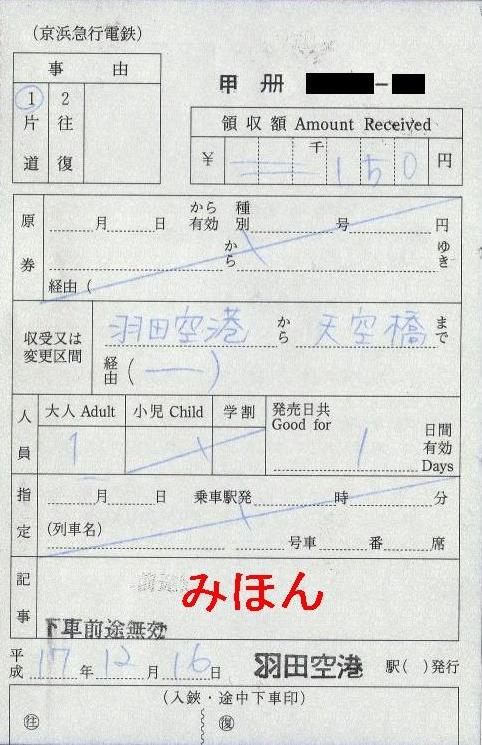 (京浜急行電鉄)
事 由
甲 册 -
1 2
片 往
道 復
領収額 Amount Received
千
¥ 150 円
原券
月 日 から有効 種別 号 円
から ゆき
経由 (
収受又は変更区間
羽田空港 から 天空橋 まで
経由 (―)
人員
大人 Adult 小児 Child 学割 発売日共
Good for
1 1 日間有効
Days
指定
月 日 乗車駅発 時 分
(列車名) 号車 番 席
記事
みほん
下車前途無効
平成 17 年 12 月 16 日 羽田空港 駅( )発行
(入鋏・途中下車印)
往 復